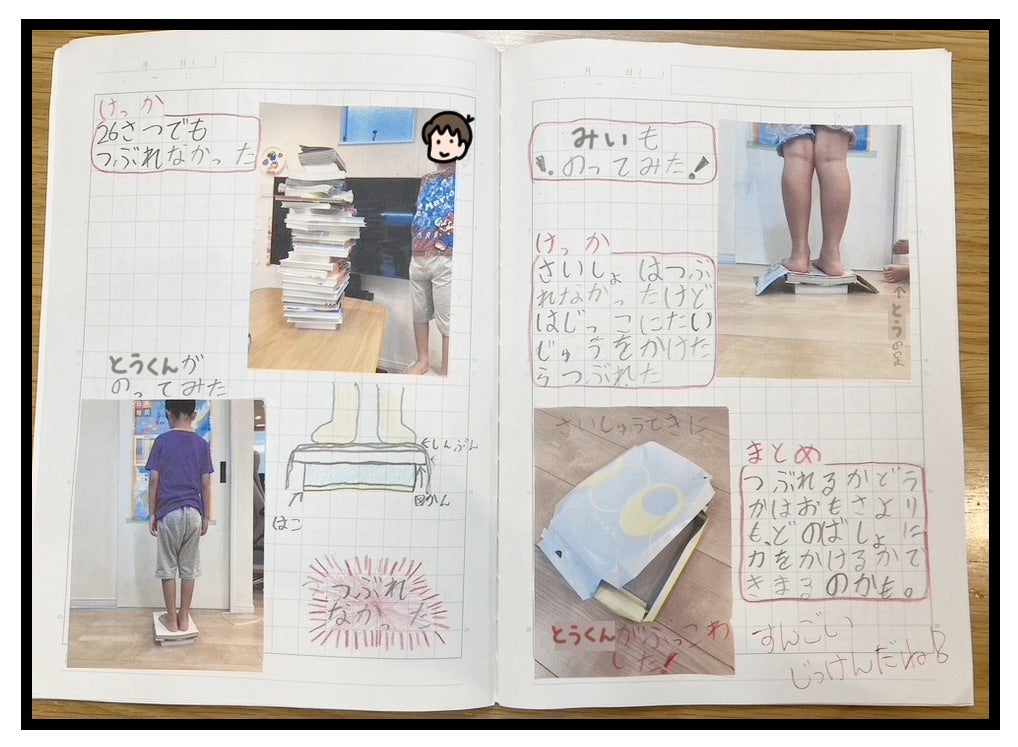 月 日( )
けっか
26さつでも
つぶれなかった
とうくんが
のってみた
←しんぶん
図かん
はこ
つぶれ
なかった
月 日( )
みいも
のってみた!
けっか
さいしょはつぶ
れなかったけど
はじっこにたい
じゅうをかけた
らつぶれた
↑とうの足
さいしゅうてきに
とうくんがぶっこわ
した!
まとめ
つぶれるかどう
かはおもさより
も、どのばしょに
力をかけるかで
きまるのかも。
すんごい
じっけんだね